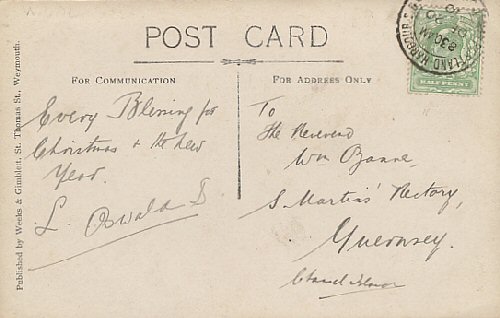 POST CARD
FOR COMMUNICATION
FOR ADDRESS ONLY
Every Blessing for
Christmas & the New
Year.
L Oswald S
To
The Reverend
Wm Ozanne,
S. Martins' Rectory,
Guernsey.
Channel Islands
Published by Weeks & Gimblett, St. Thomas St., Weymouth.
PORTLAND HARBOUR
8.30 AM
HALFPENNY